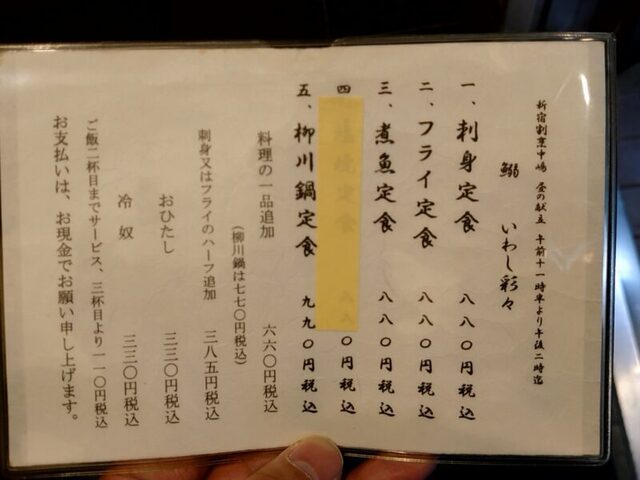 新宿割烹中嶋 昼の献立 午前十一時半より午後二時迄
鰯 いわし彩々
一、刺身定食 八八〇円税込
二、フライ定食 八八〇円税込
三、煮魚定食 八八〇円税込
四、塩焼定食 八八〇円税込
五、柳川鍋定食 九九〇円税込
料理の一品追加 六六〇円税込
(柳川鍋は七七〇円税込)
刺身又はフライのハーフ追加 三八五円税込
おひたし 三三〇円税込
冷奴 三三〇円税込
ご飯二杯目までサービス、三杯目より一一〇円税込
お支払いは、お現金でお願い申し上げます。